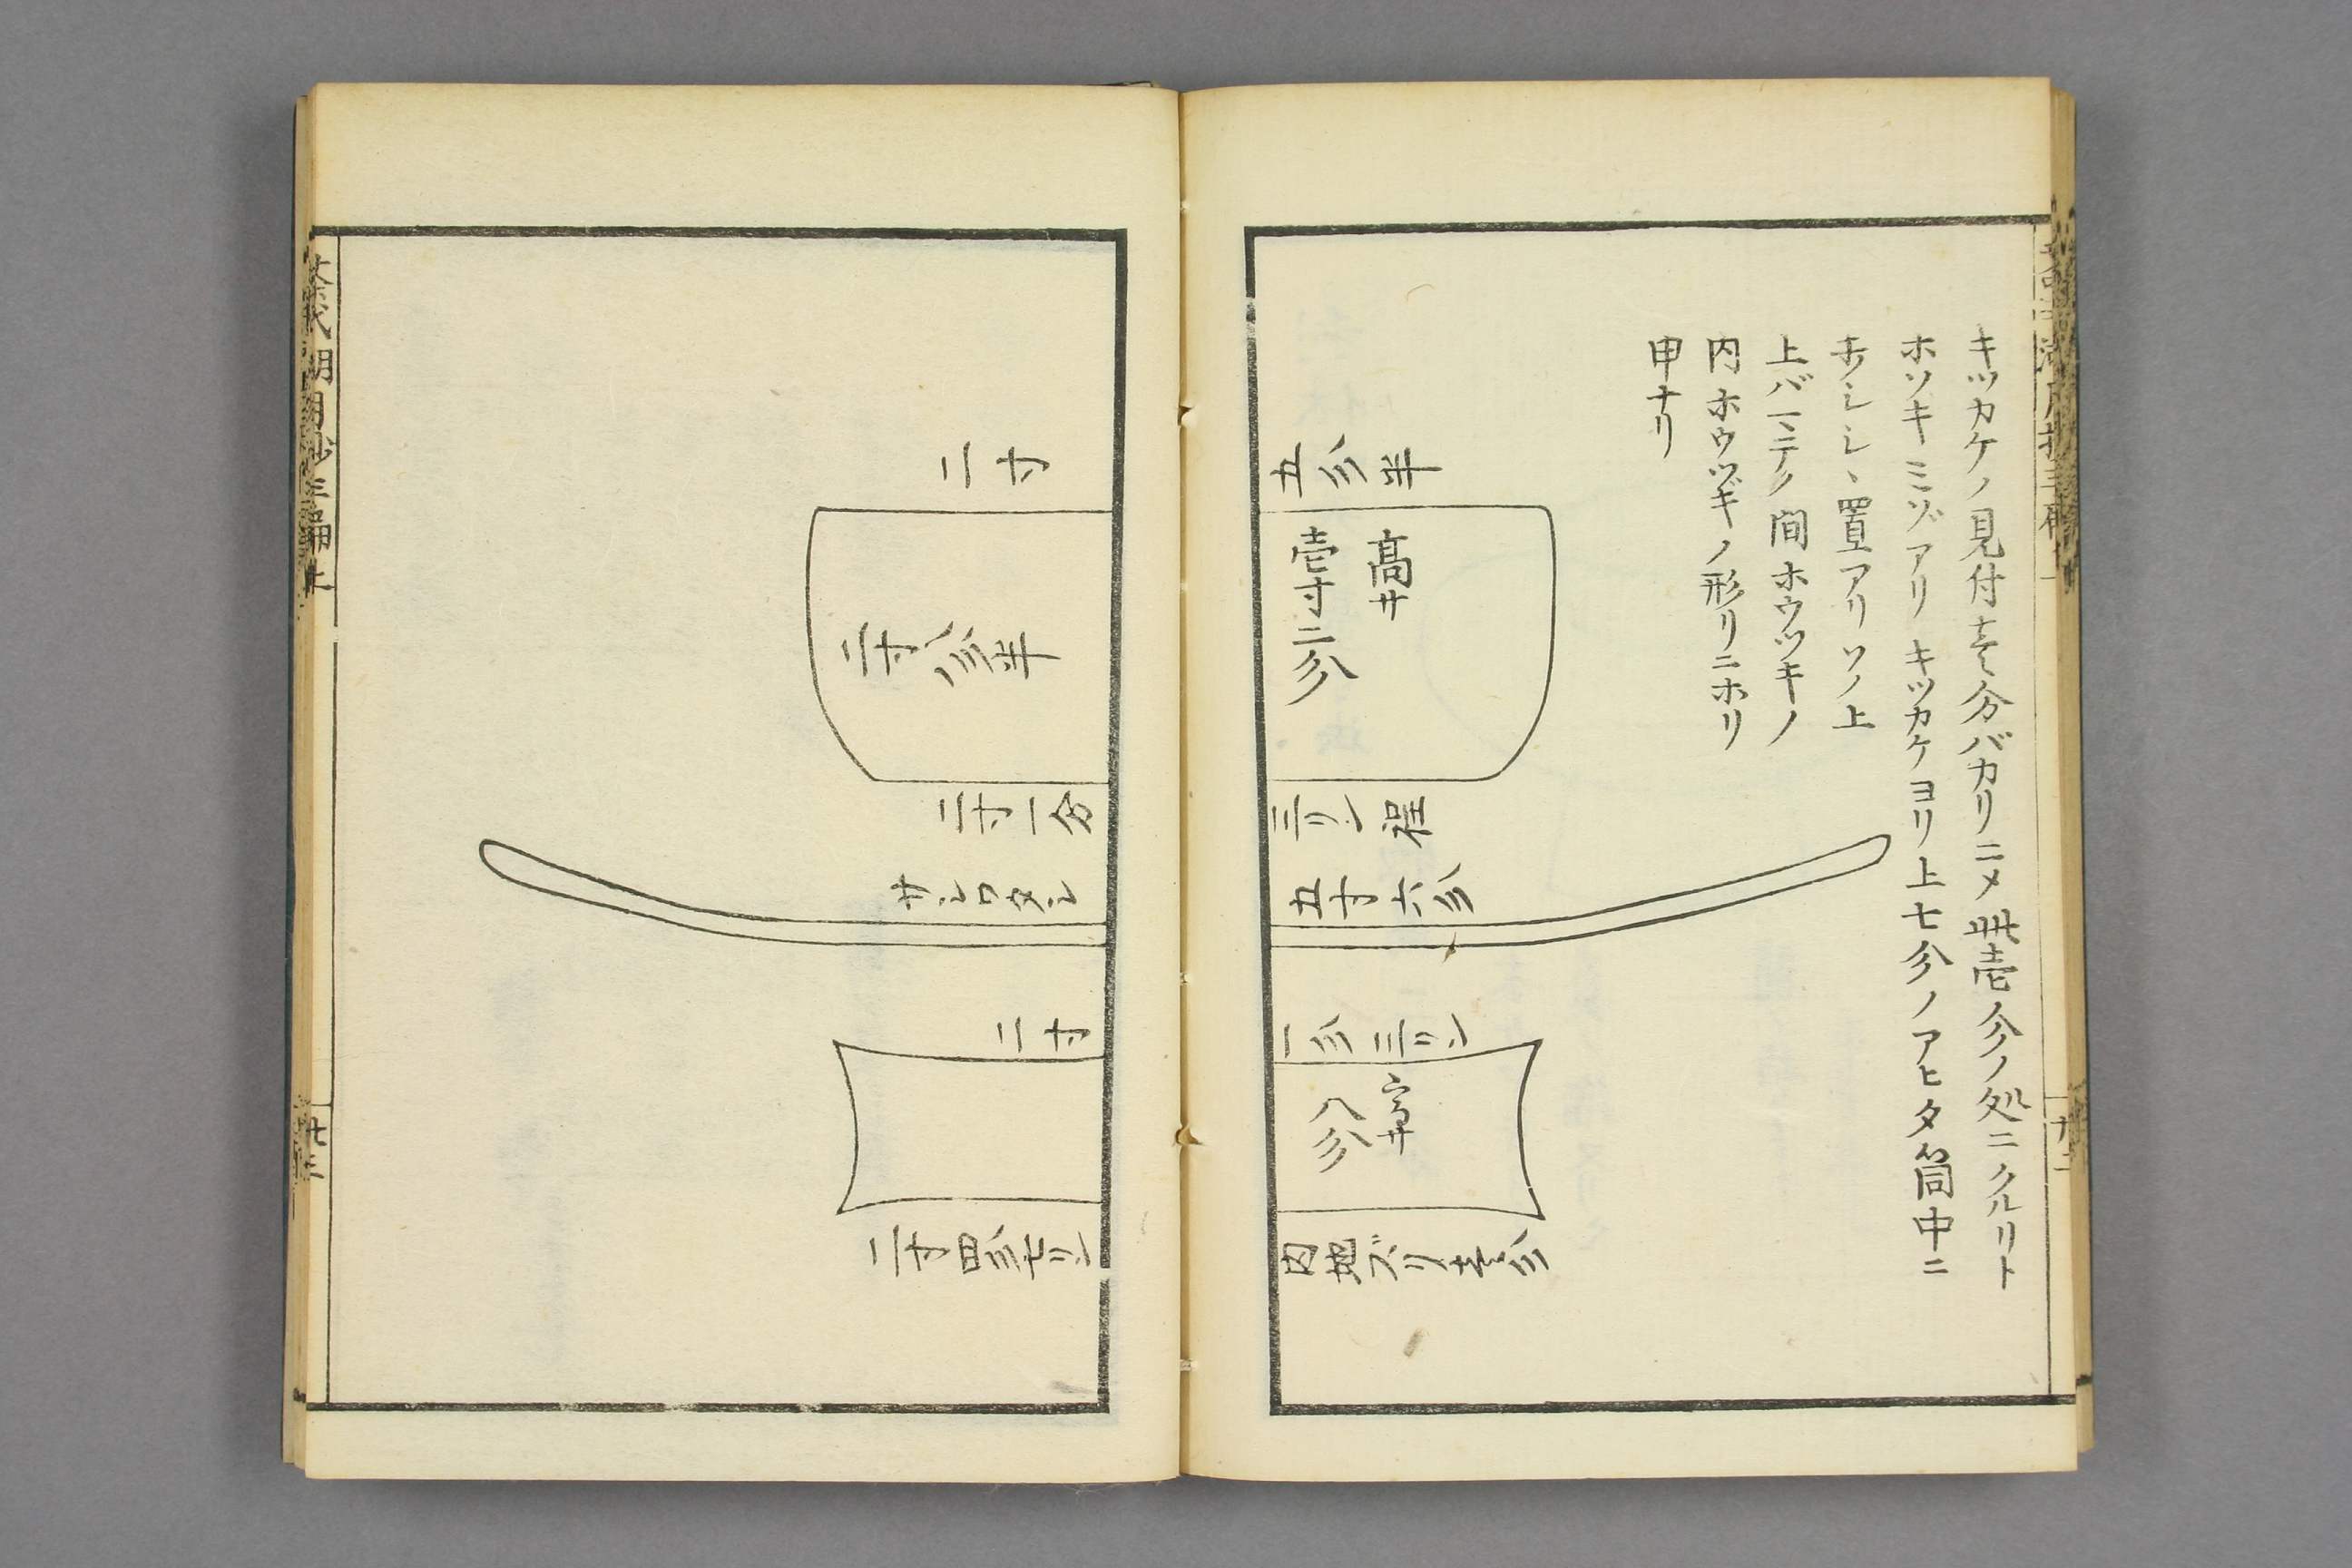 キツカケノ見付壱分バカリニメ此壱分ノ処ニクルリト
ホソキミゾアリキツカケヨリ上七分ノアヒタ筒中ニ
置アリソノ上
上バマテノ間ホウツキノ
内ホウヅキノ形リニホリ
申ナリ
五分半
高サ
壱寸二分
三リン程
五寸六分
一分三リン
高サ
八分
内
壱分
二寸
二寸八分半
二寸一分
サシワタシ
二寸
二寸四分七リン
明月抄三編上
廿三